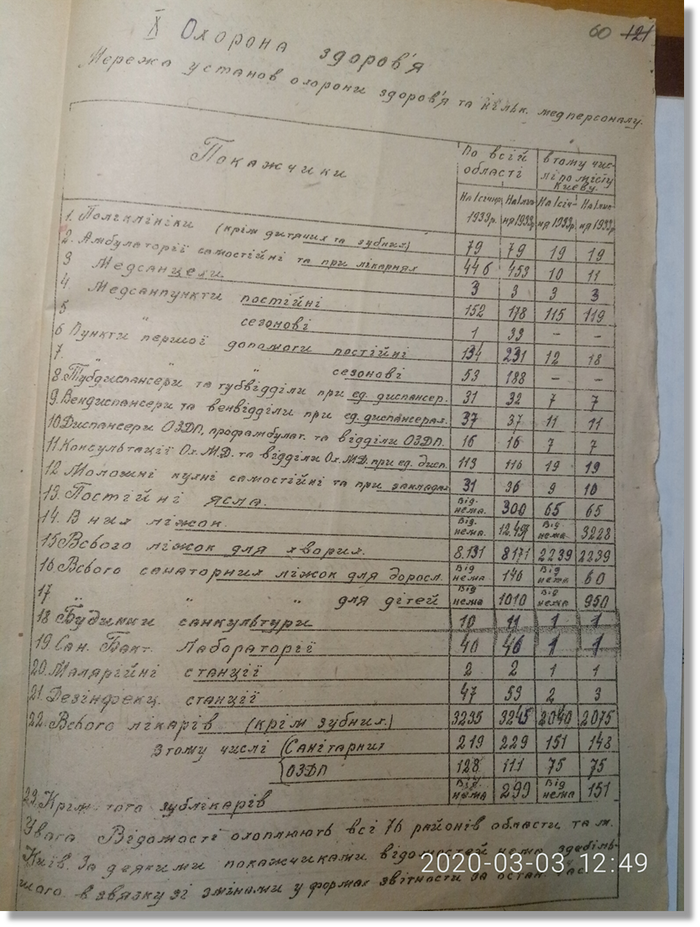 60 121
X Охорона здоров'я
Мережа установ охорони здоров'я та кільк. медперсоналу.
Покажчики
По всій області
втому числі по місту Києву.
На 1 січня 1933р.
На 1 лип-ня 1933р.
На 1 січ-ня 1933р.
На 1 лип-ня 1933р.
1. Поліклініки (крім дитячих та зубних) 79 79 19 19
2. Амбулаторії самостійні та при лікарнях 446 453 10 11
3 Медсанцехи. 3 3 3 3
4. Медсанпункти постійні 152 178 115 119
5 " сезонові 1 33 - -
6 Пункти першої допомоги постійні 134 231 12 18
7. " " " сезонові 53 188 - -
8. Тубдиспансери та тубвідділи при ед. диспансер. 31 32 7 7
9. Вендиспансери та венвідділи при ед. диспансерах. 37 37 11 11
10. Диспансери ОЗДП, профамбулат. та відділи ОЗДП. 16 16 7 7
11 Консультації Ох.М.Д. та відділи Ох.М.Д. при ед. дисп. 113 116 19 19
12. Молочні кухні самостійні та при закладах 31 36 9 10
13. Постійні ясла. Від. нема. 300 65 65
14. В них ліжок. Від. нема. Від. нема. 3228
15 Всього ліжок для хворих. 8131 8171 2239 2239
16 Всього санаторних ліжок для доросл. Від нема 146 Від нема 60
17 " " " для дітей Від нема 1010 Від нема 950
18 Будинки санкультури 10 11 1 1
19. Сан. Бакт. Лабораторії 40 46 1 1
20. Малярійні станції 2 2 1 1
21. Дезінфекц. станції 47 53 2 3
22. Всього лікарів (крім зубних.) 3235 3245 2040 2075
Зтому числі (Санітарних 219 229 151 148
ОЗДП 128 111 75 75
23. Крім того зублікарів Від. нема 293 Від нема 151
Увага Відомості охоплюють всі 76 районів области та м.
Київ. За деякими покажчиками відомостей нема здебіль-
шого в звязку зі змінами у формах звітности за остан
2020-03-03 12:49